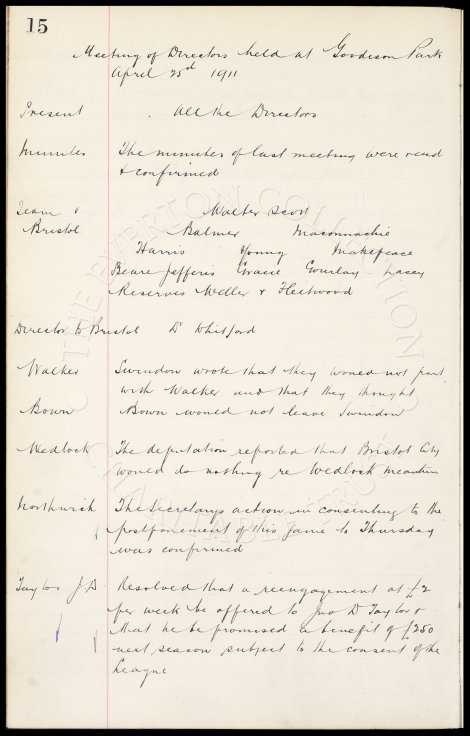 15
Meeting of Directors held at Goodison Park
April 25th 1911
Present . All the Directors
Minutes The minutes of last meeting were read
& confirmed
Team v Walter Scott
Bristol Balmer Maconnachie
Harris Young Makepeace
Beare Jefferis Gracie Gourlay Lacey
Reserves Weller & Fleetwood
Director to Bristol Dr Whitford
Walker Swindon wrote that they would not part
with Walker and that they thought
Bown Bown would not leave Swindon
Wedlock The deputation reported that Bristol City
would do nothing re Wedlock meantime
Northwich The Secretarys action in consenting to the
postponement of this game to Thursday
was confirmed
Taylor J.D. Resolved that a reengagement at £2
per week be offered to Jno D Taylor &
that he be promised a benefit of £250
next season subject to the consent of the
League
THE EVERTON COLLECTION